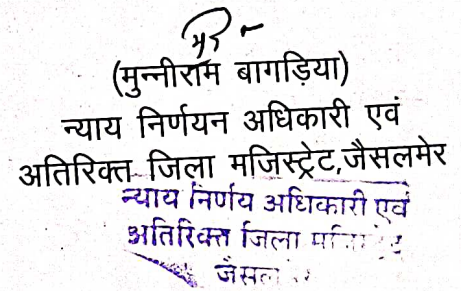 (मुन्नीराम बागड़िया)
न्याय निर्णयन अधिकारी एवं
अतिरिक्त जिला मजिस्ट्रेट,जैसलमेर
न्याय निर्णय अधिकारी एवं
अतिरिक्त जिला